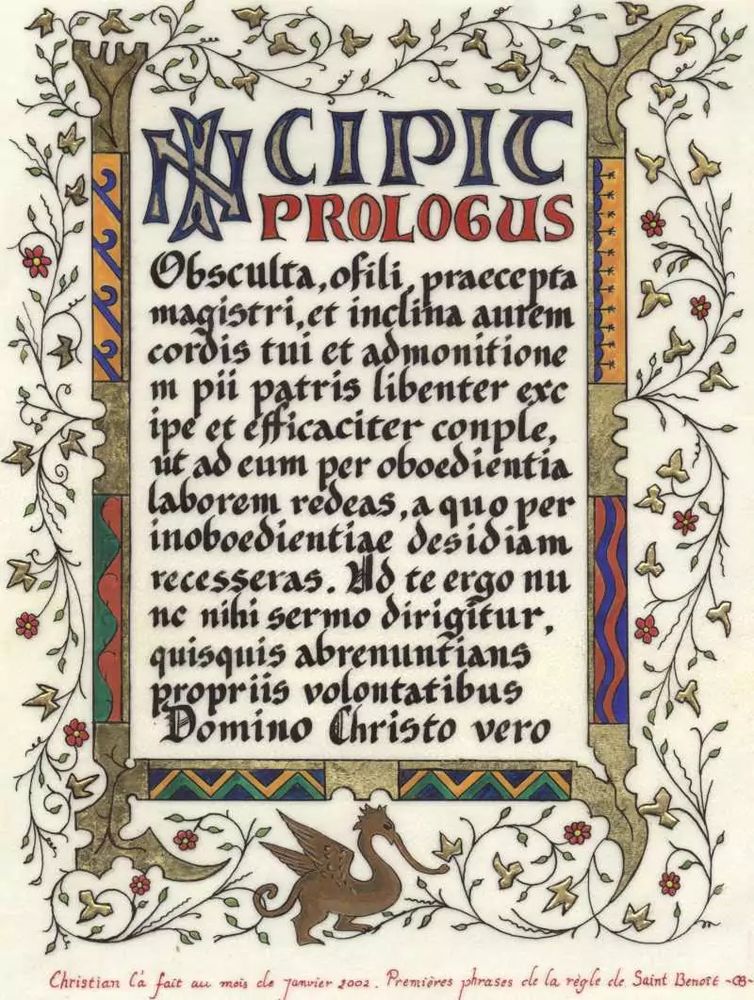 INCIPIT
PROLOGUS
Obsculta, o fili, praecepta
magistri, et inclina aurem
cordis tui et admonitione
m pii patris libenter exc
ipe et efficaciter conple,
ut ad eum per oboedientia
laborem redeas, a quo per
inoboedientiae desidiam
recesseras. Ad te ergo nu
nc nihi sermo dirigitur,
quisquis abrenuntians
propriis volontatibus
Domino Christo vero
Christian l'a fait au mois de janvier 2002. Premières phrases de la règle de Saint Benoît